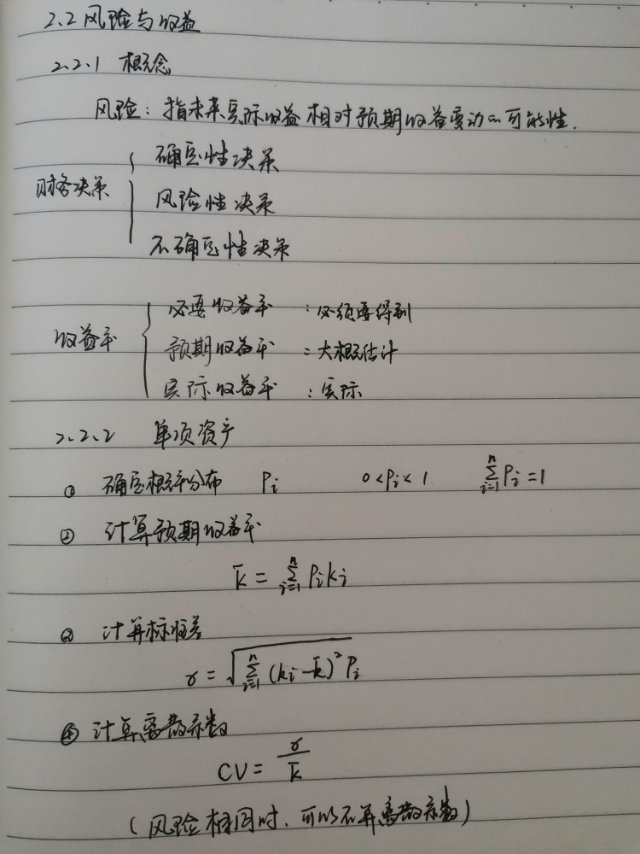 2.2 风险与收益
2.2.1 概念
风险：指未来实际收益相对预期收益变动的可能性.
财务决策 { 确定性决策
风险性决策
不确定性决策
收益率 { 必要收益率 ：必须要得到
预期收益率 ：大概估计
实际收益率 ：实际
2.2.2 单项资产
① 确定概率分布 Pi 0<Pi<1 \sum_{i=1}^{n} Pi=1
② 计算预期收益率
\bar{k} = \sum_{i=1}^{n} Piki
③ 计算标准差
σ = \sqrt{\sum_{i=1}^{n} (ki-\bar{k})^2 Pi}
④ 计算离散系数
CV = \frac{σ}{\bar{k}}
(风险相同时，可以不算离散系数)